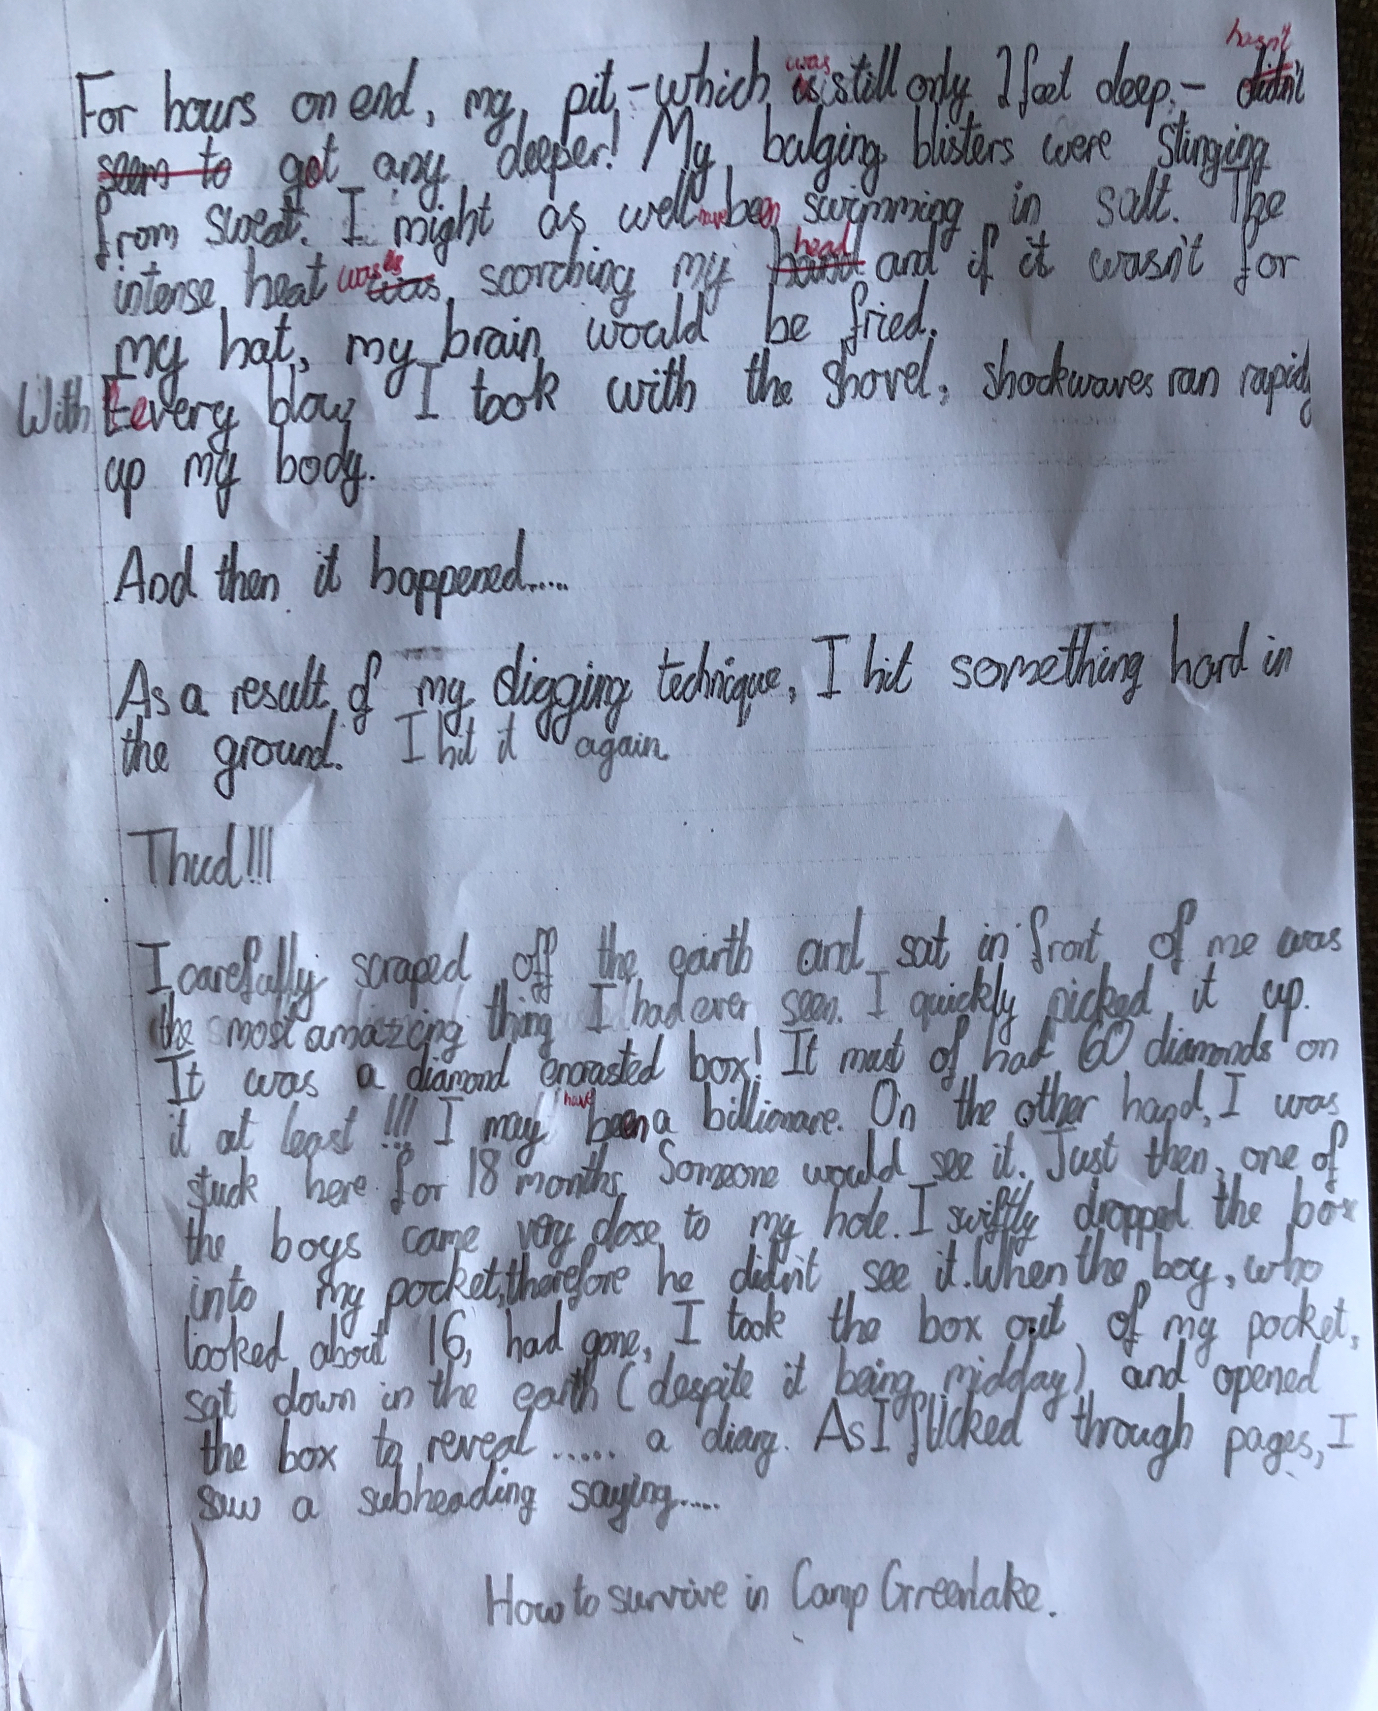 For hours on end, my pit,-which was still only 2 feet deep,- hasn't
got any deeper! My bulging blisters were stinging
from sweat. I might as well have been swimming in salt. The
intense heat was scorching my head and if it wasn't for
my hat, my brain would be fried.
With every blow I took with the shovel, shockwaves ran rapidly
up my body.
And then it happened.....
As a result of my digging technique, I hit something hard in
the ground. I hit it again.
Thud!!!
I carefully scraped off the earth and sat in front of me was
the most amazing thing I had ever seen. I quickly picked it up.
It was a diamond encrusted box! It must of had 60 diamonds on
it at least!!! I may have been a billionare. On the other hand, I was
stuck here for 18 months. Someone would see it. Just then, one of
the boys came very close to my hole. I swiftly dropped the box
into my pocket, therefore he didn't see it. When the boy, who
looked about 16, had gone, I took the box out of my pocket,
sat down in the earth (despite it being midday) and opened
the box to reveal ..... a diary. As I flicked through pages, I
saw a subheading saying.....
How to survive in Camp Greenlake.